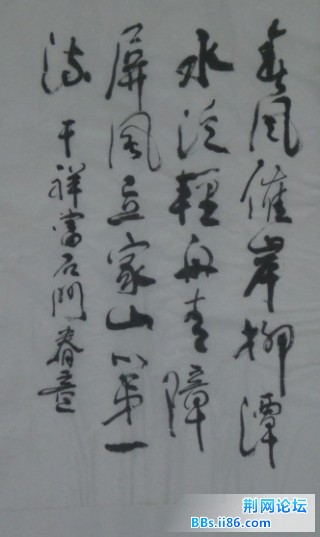 春风催岸柳潭
水泛轻舟青障
屏風立家山小第一
流 干祥當石門春意
荆网论坛
BBs.ii86.com